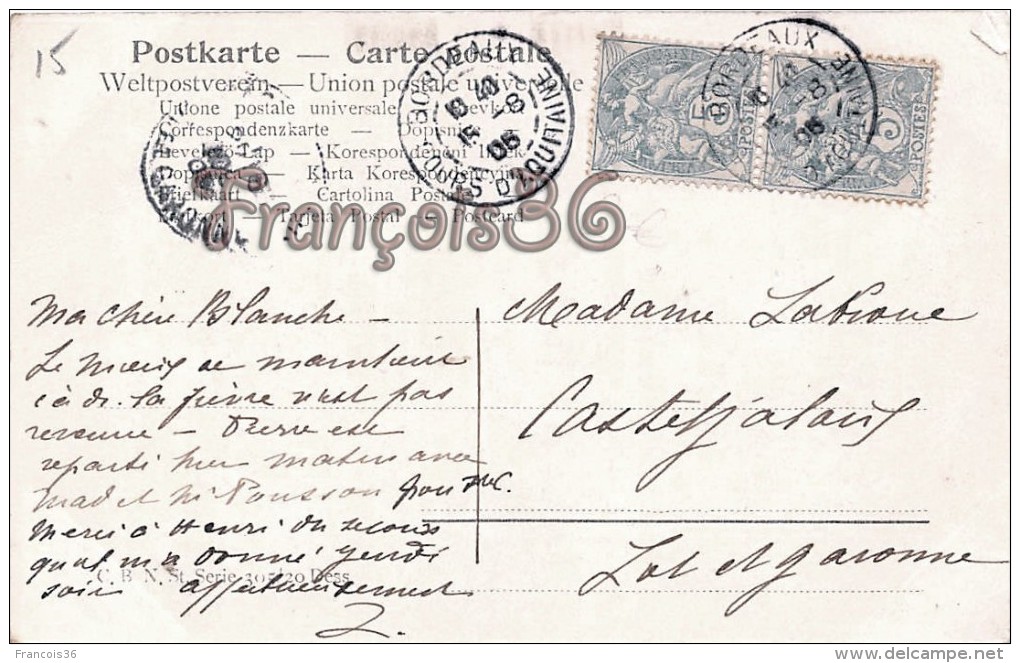 15
Postkarte — Carte postale
Weltpostverein — Union postale universelle
Unione postale universale
Correspondenzkarte — Dopisnice
Levelező-Lap — Korespondenční lístek
Dopisnica — Karta Korespondencyjna
Briefkaart — Cartolina Postale
Brefkort — Tarjeta Postal — Postcard
BORDEAUX
COURS D'AQUITAINE
06
BORDEAUX
06
D'AQUITAINE
5
POSTES
5
POSTES
François36
Ma chère Blanche —
Le mieux se maintient
c.à.d. la fièvre n'est pas
revenue — Pierre est
reparti hier matin avec
Mad et Mr Pousson pour
Merci à Henri du secours
qu'il m'a donné jeudi
soir affectueusement
C. B. N. St. Serie 305/20 Dess.
Madame
Casteljaloux
Lot et Garonne
Francois36
delcampe.net